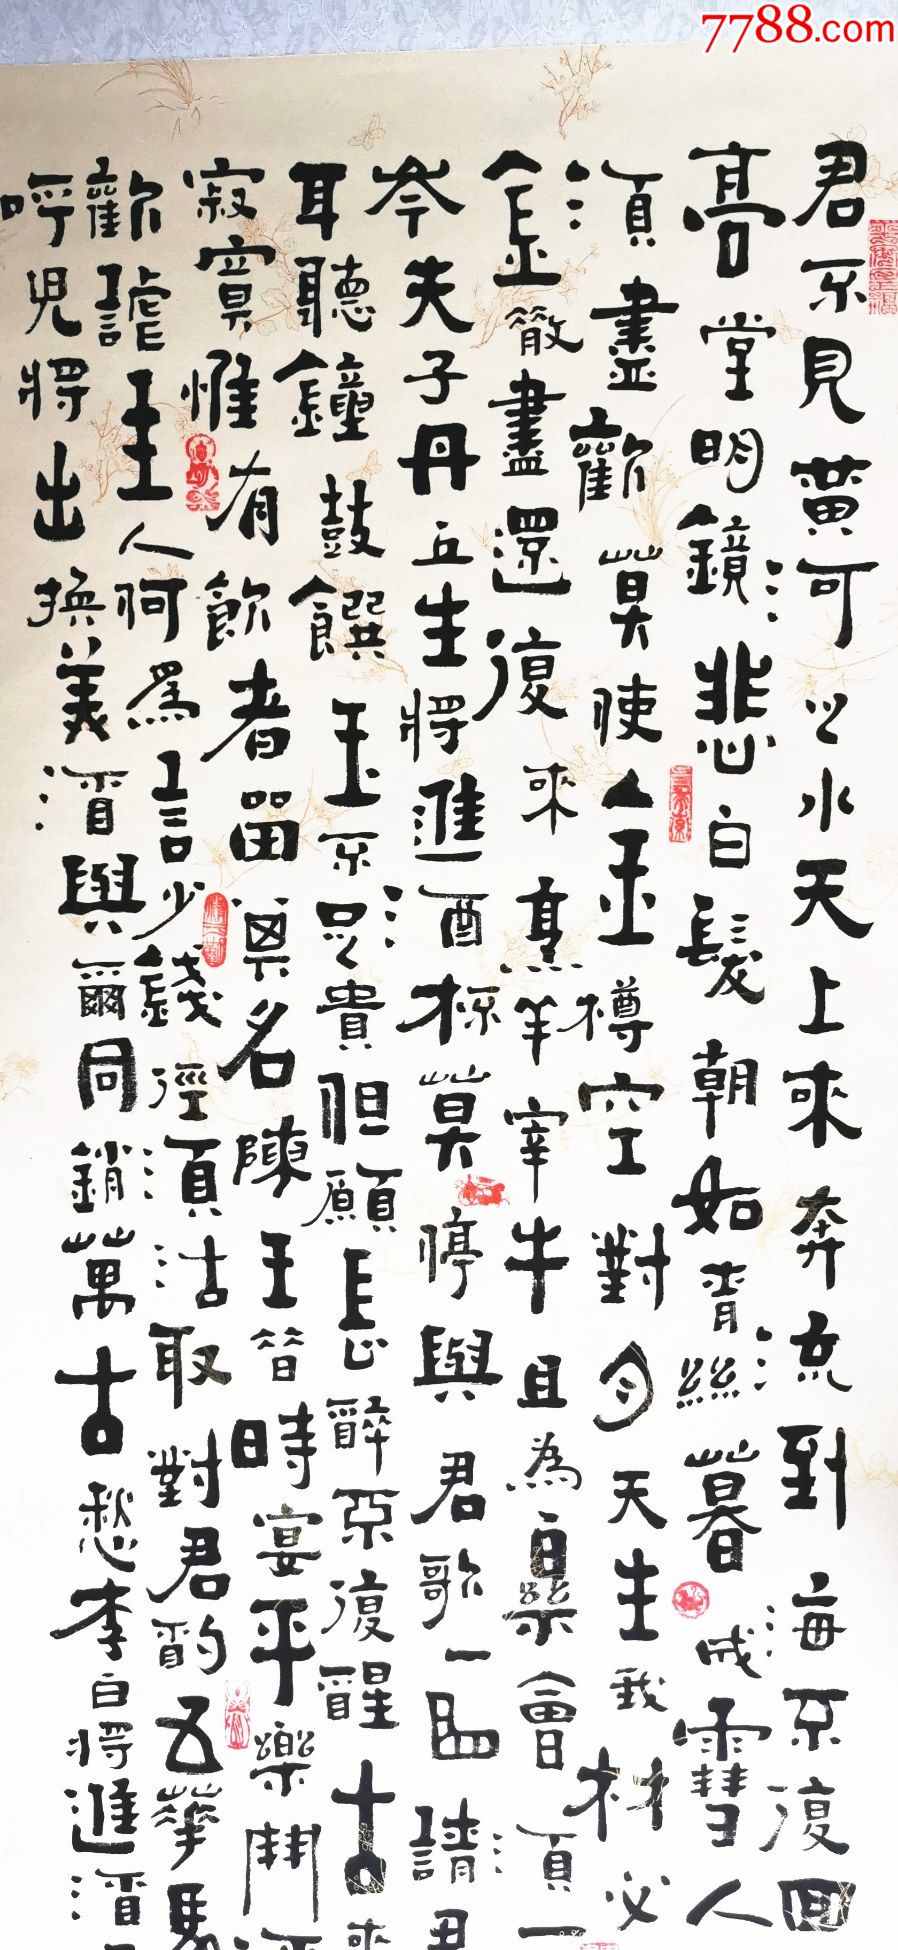 7788.com
君不見黃河之水天上來奔流到海不復回
高堂明鏡悲白髮朝如青絲暮成雪人
須盡歡莫使金樽空對月天生我材必
金散盡還復來烹羊宰牛且為樂會須一
岑夫子丹丘生將進酒杯莫停與君歌一曲請君
耳聽鐘鼓饌玉不足貴但願長醉不復醒古來
寂寞惟有飲者留其名陳王昔時宴平樂鬥酒
歡謔主人何為言少錢徑須沽取對君酌五華馬
呼兒將出換美酒與爾同銷萬古愁李白將進酒